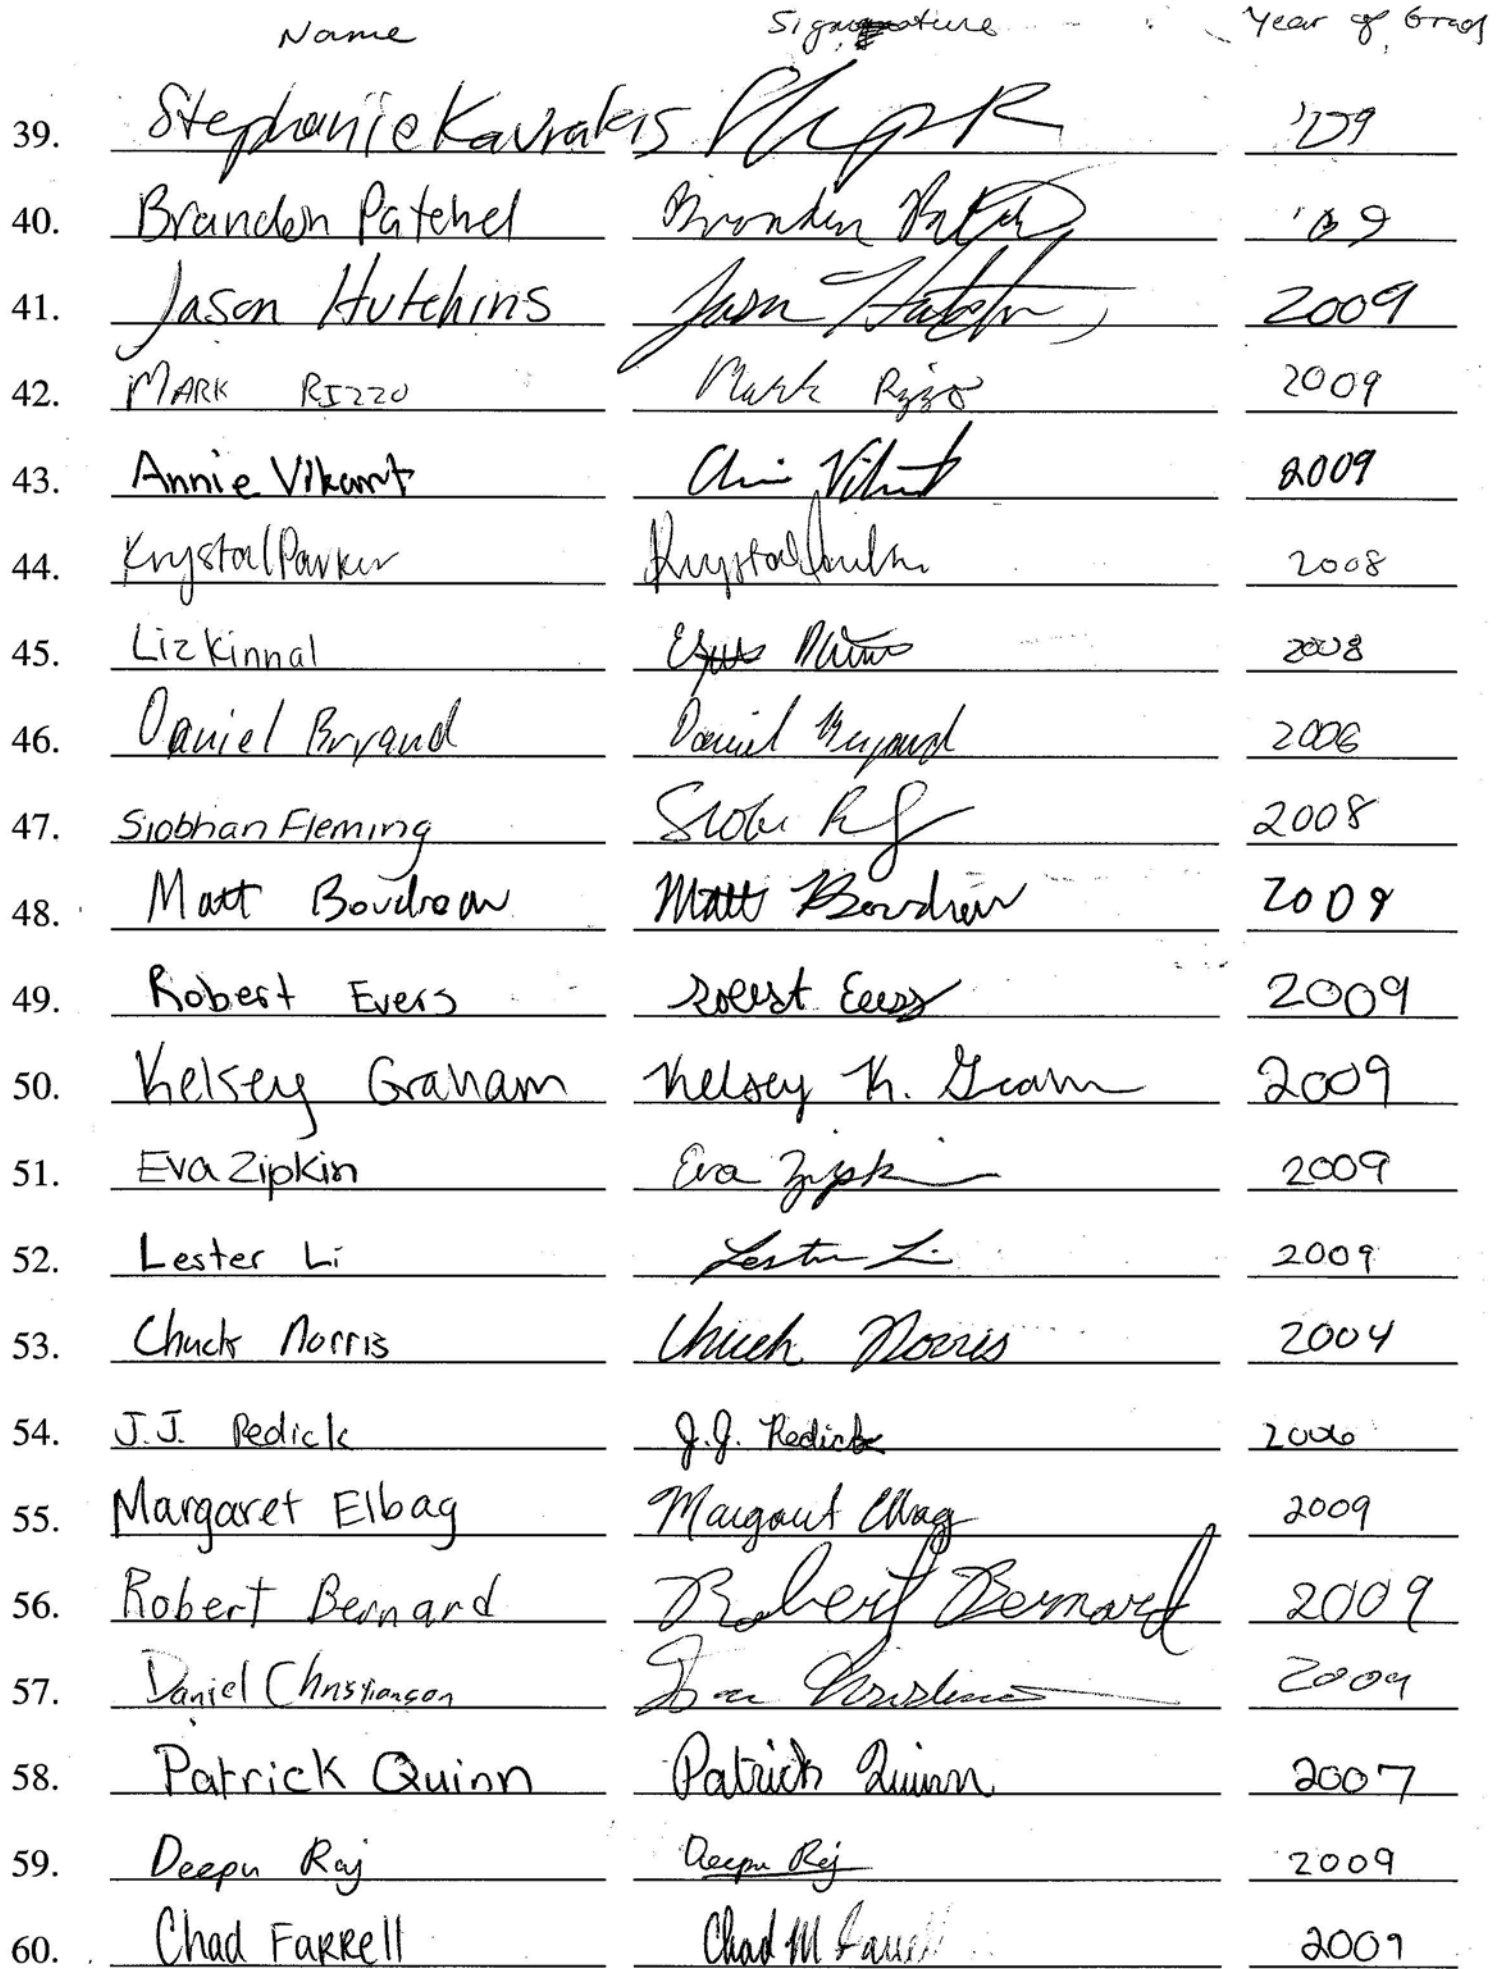 Name Signature Year of Grad
39. Stephanie Kavrakis '09
40. Brandon Patchel Brandon '09
41. Jason Hutchins Jason 2009
42. MARK RIZZO Mark Rizzo 2009
43. Annie Vikart 2009
44. Krystal Parker Krystal 2008
45. Liz Kinnal 2008
46. Daniel Bryand Daniel Bryand 2006
47. Siobhan Fleming 2008
48. Matt Boudreau Matt Boudreau 2009
49. Robert Evers Robert Evers 2009
50. Kelsey Graham Kelsey K. Graham 2009
51. Eva Zipkin Eva Zipkin 2009
52. Lester Li Lester Li 2009
53. Chuck Norris Chuck Norris 2004
54. J.J. Redick J.J. Redick 2006
55. Margaret Elbag Margaret Elbag 2009
56. Robert Bernard Robert Bernard 2009
57. Daniel Christianson 2009
58. Patrick Quinn Patrick Quinn 2007
59. Deepu Raj Deepu Raj 2009
60. Chad FARRell Chad M Farrell 2009